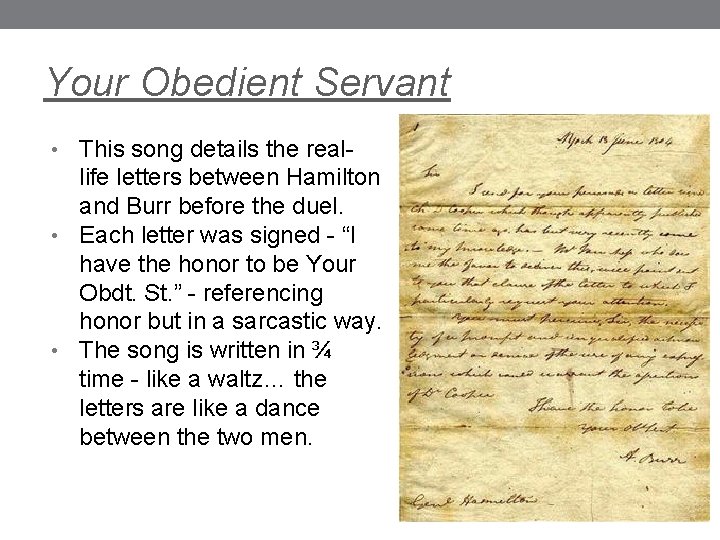 Your Obedient Servant
• This song details the real-
life letters between Hamilton
and Burr before the duel.
• Each letter was signed - “I
have the honor to be Your
Obdt. St.” - referencing
honor but in a sarcastic way.
• The song is written in ¾
time - like a waltz… the
letters are like a dance
between the two men.
June 1804
Sir
I send for your perusal a letter signed
Ch. D Cooper which though apparently published
some time ago, has but very recently come
to my knowledge. Mr Van Ness who does
me the favor to deliver this, will point out
to you that clause of the letter to which I
particularly request your attention.
You must perceive, Sir, the necessi-
ty of a prompt and unqualified acknow-
ledgment or denial of the use of any expres-
sions which could warrant the assertions
of Dr Cooper
I have the honor to be
Your Obt
A. Burr
Genl Hamilton